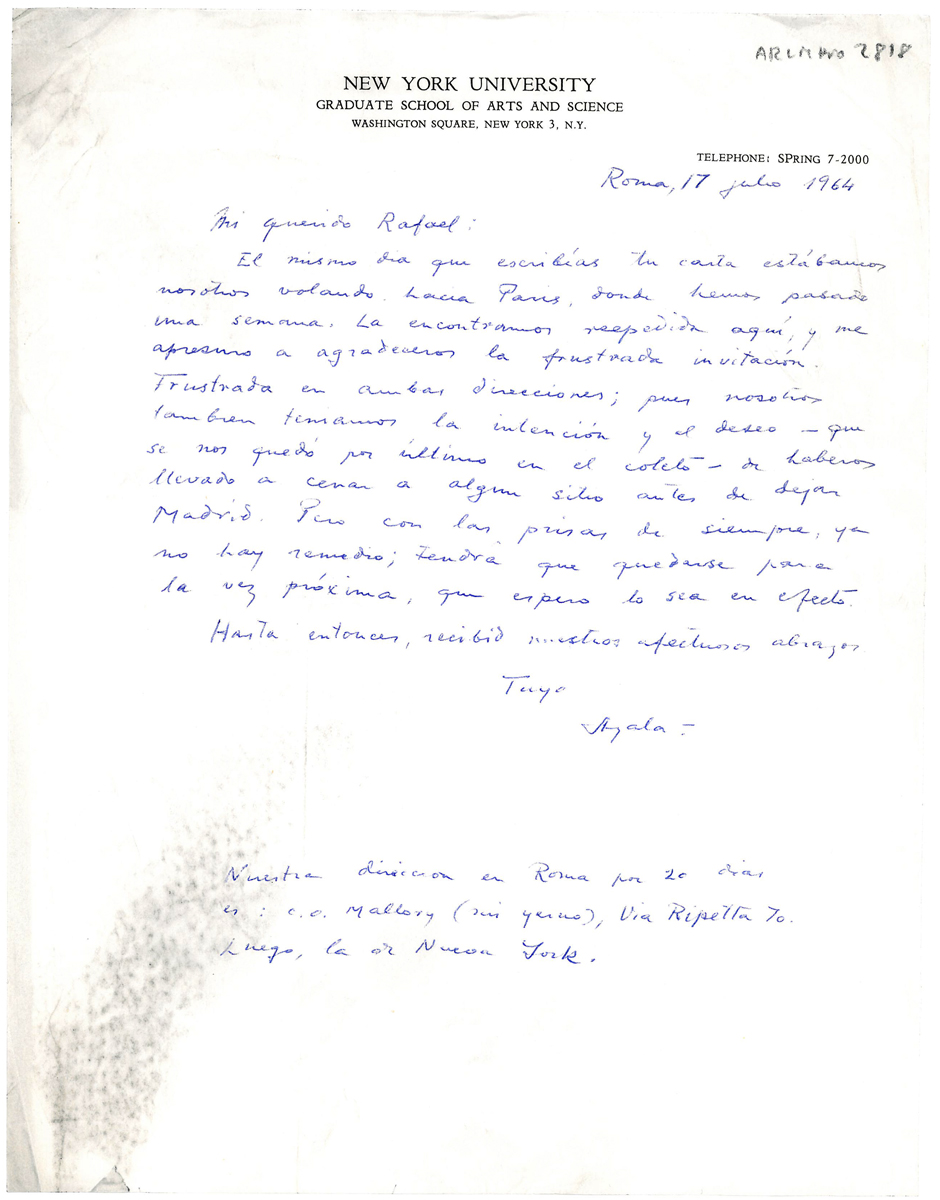 ARLM Avo 2818
NEW YORK UNIVERSITY
GRADUATE SCHOOL OF ARTS AND SCIENCE
WASHINGTON SQUARE, NEW YORK 3, N.Y.
TELEPHONE: SPRING 7-2000
Roma, 17 julio 1964
Mi querido Rafael:
El mismo día que escribías tu carta estábamos
nosotros volando hacia Paris, donde hemos pasado
una semana. La encontramos reepedida aquí, y me
apresuro a agradeceros la frustrada invitación.
Frustrada en ambas direcciones; pues nosotros
tambien teniamos la intención y el deseo – que
se nos quedó por último en el coleto – de haberos
llevado a cenar a algun sitio antes de dejar
Madrid. Pero con las prisas de siempre, ya
no hay remedio; tendrá que quedarse para
la vez próxima, que espero lo sea en efecto.
Hasta entonces, recibid nuestros afectuosos abrazos
Tuyo
Ayala –
Nuestra direccion en Roma por 20 dias
es: c.o. Mallory (mi yerno), Via Ripetta 70.
Luego, la de Nueva York.